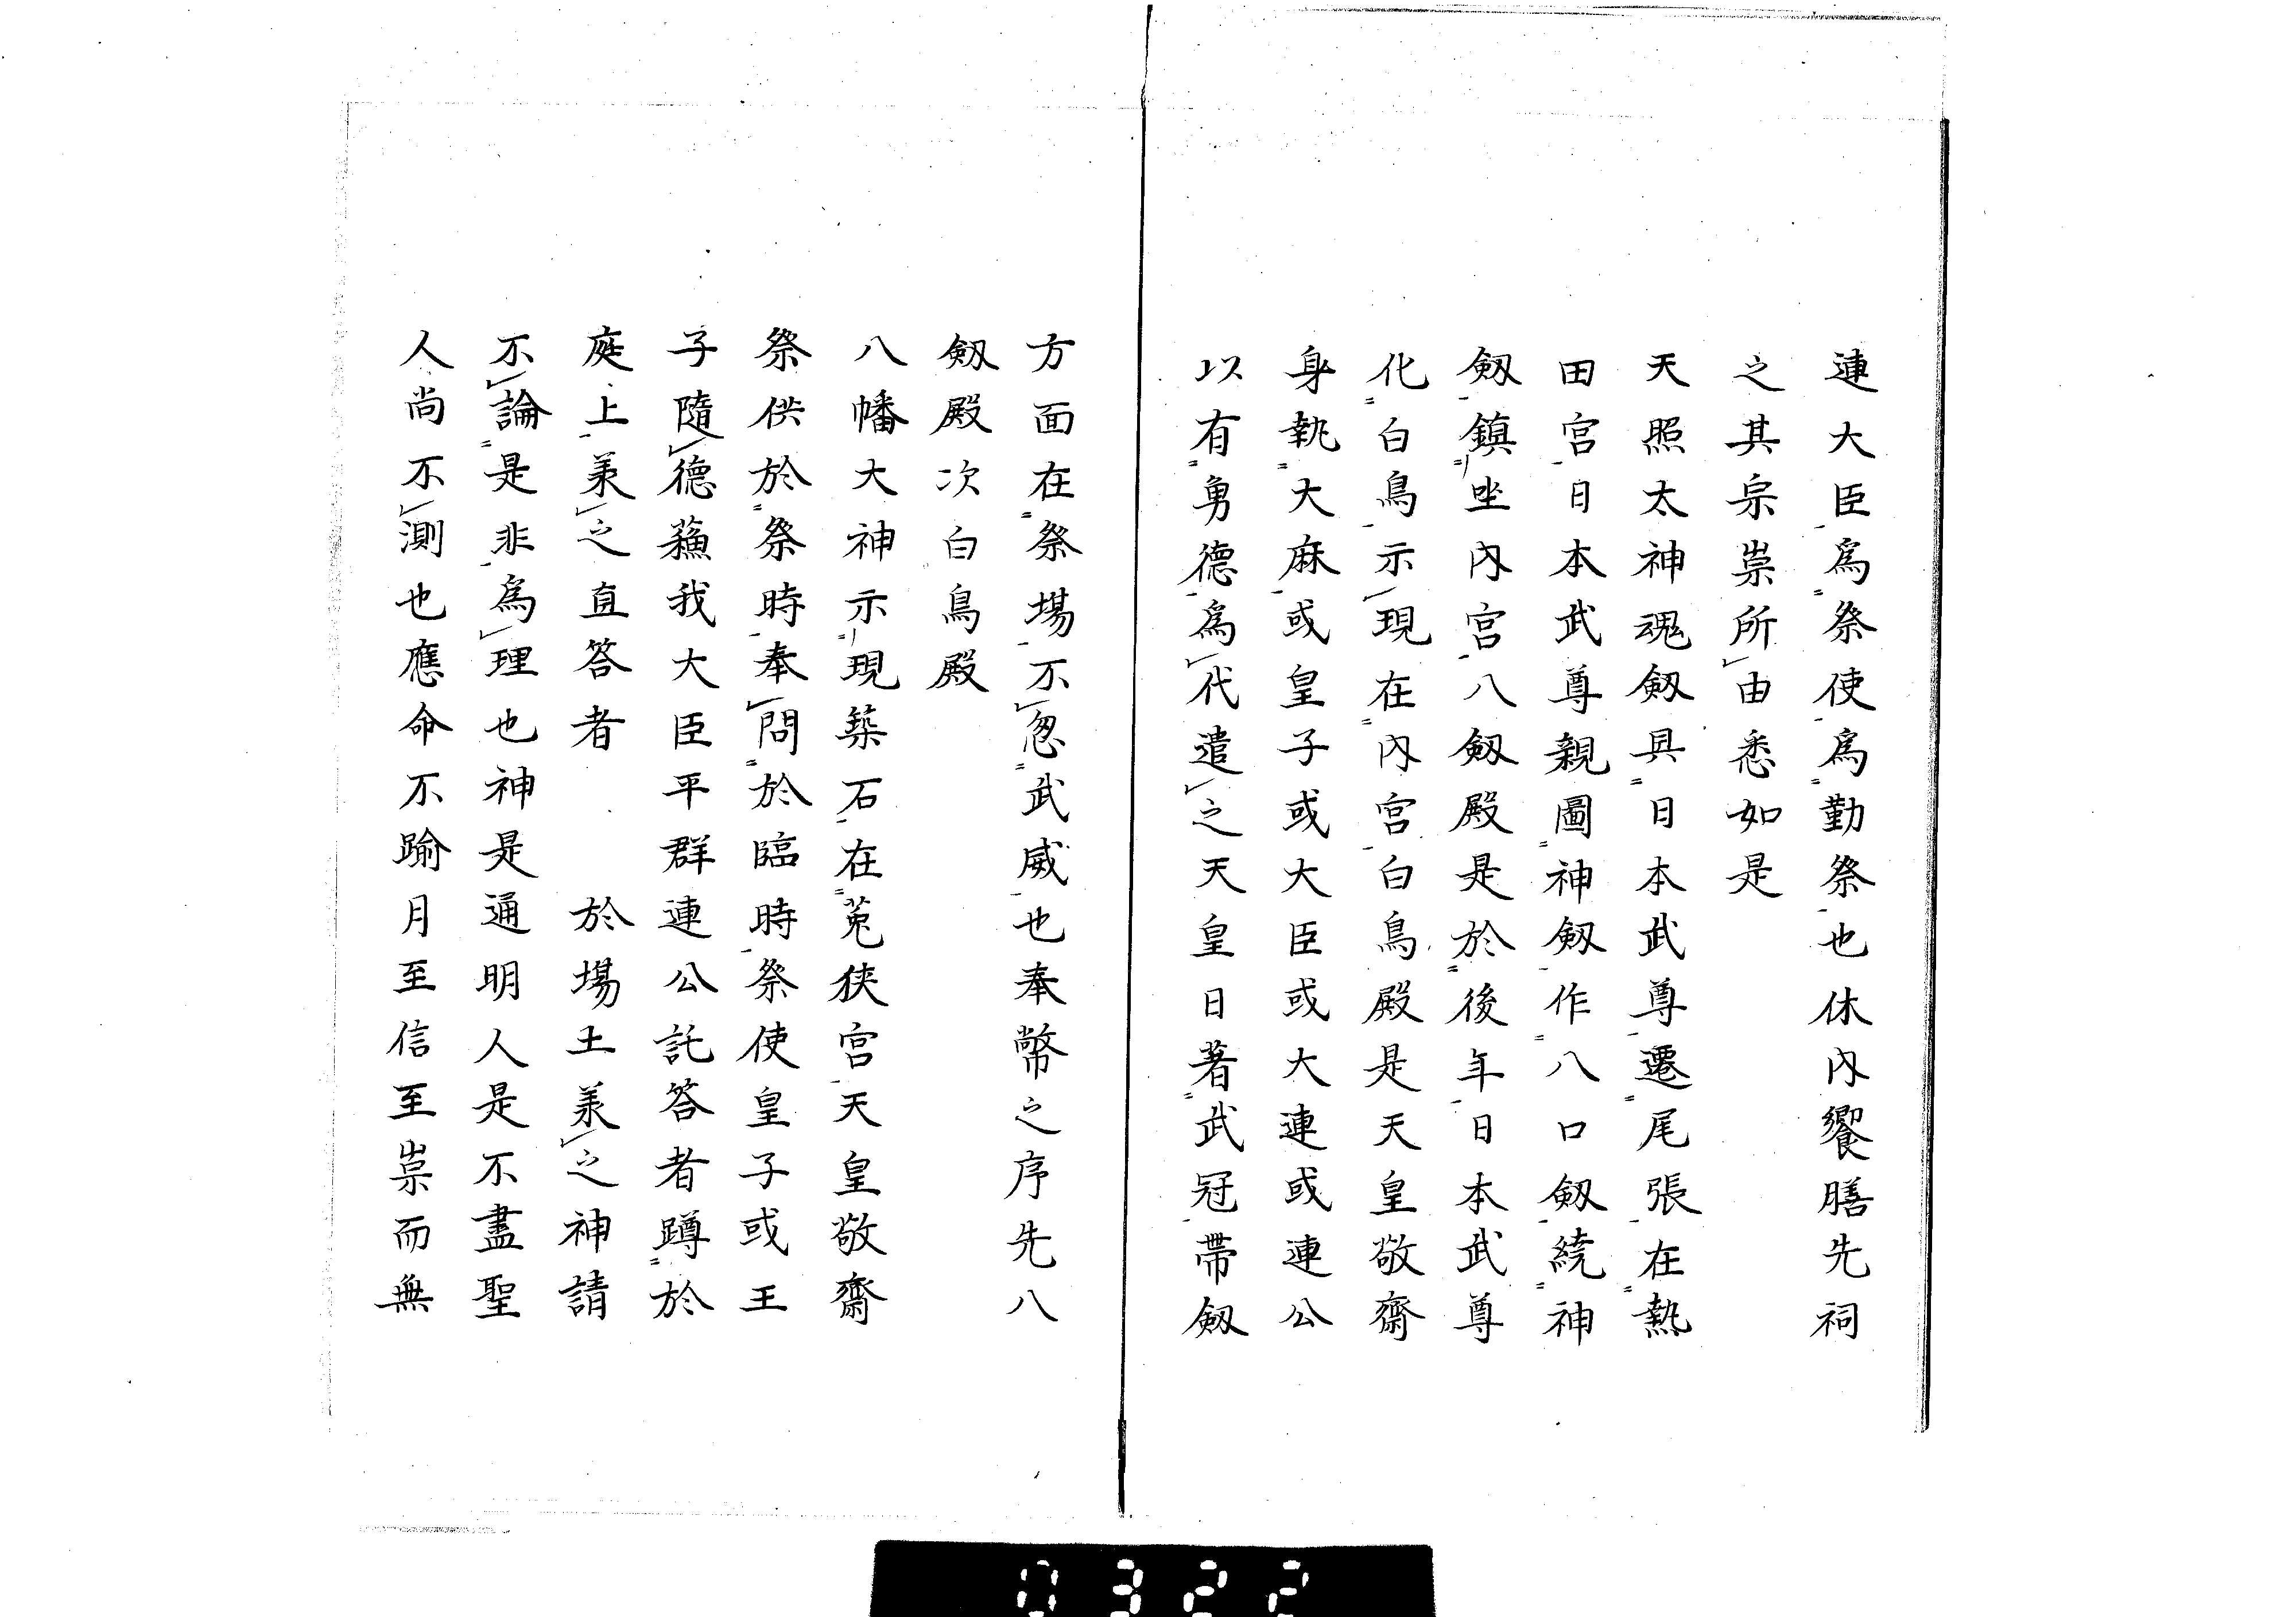 連大臣爲祭使爲勤祭也休內饗膳先祠
之其宗祟所由悉如是
天照太神魂劔具日本武尊遷尾張在熱
田宮日本武尊親圖神劔作八口劔繞神
劔鎮坐內宮八劔殿是於後年日本武尊
化白鳥示現在內宮白鳥殿是天皇敬齋
身執大麻或皇子或大臣或大連或連公
以有勇德爲代遣之天皇日著武冠帶劔
方面在祭場不忽武威也奉幣之序先八
劔殿次白鳥殿
八幡大神示現築石在菟狹宮天皇敬齋
祭供於祭時奉問於臨時祭使皇子或王
子隨德蘓我大臣平群連公託答者蹲於
庭上羕之直答者　於場土羕之神請
不論是非爲理也神是通明人是不盡聖
人尚不測也應命不踰月至信至祟而無
0322